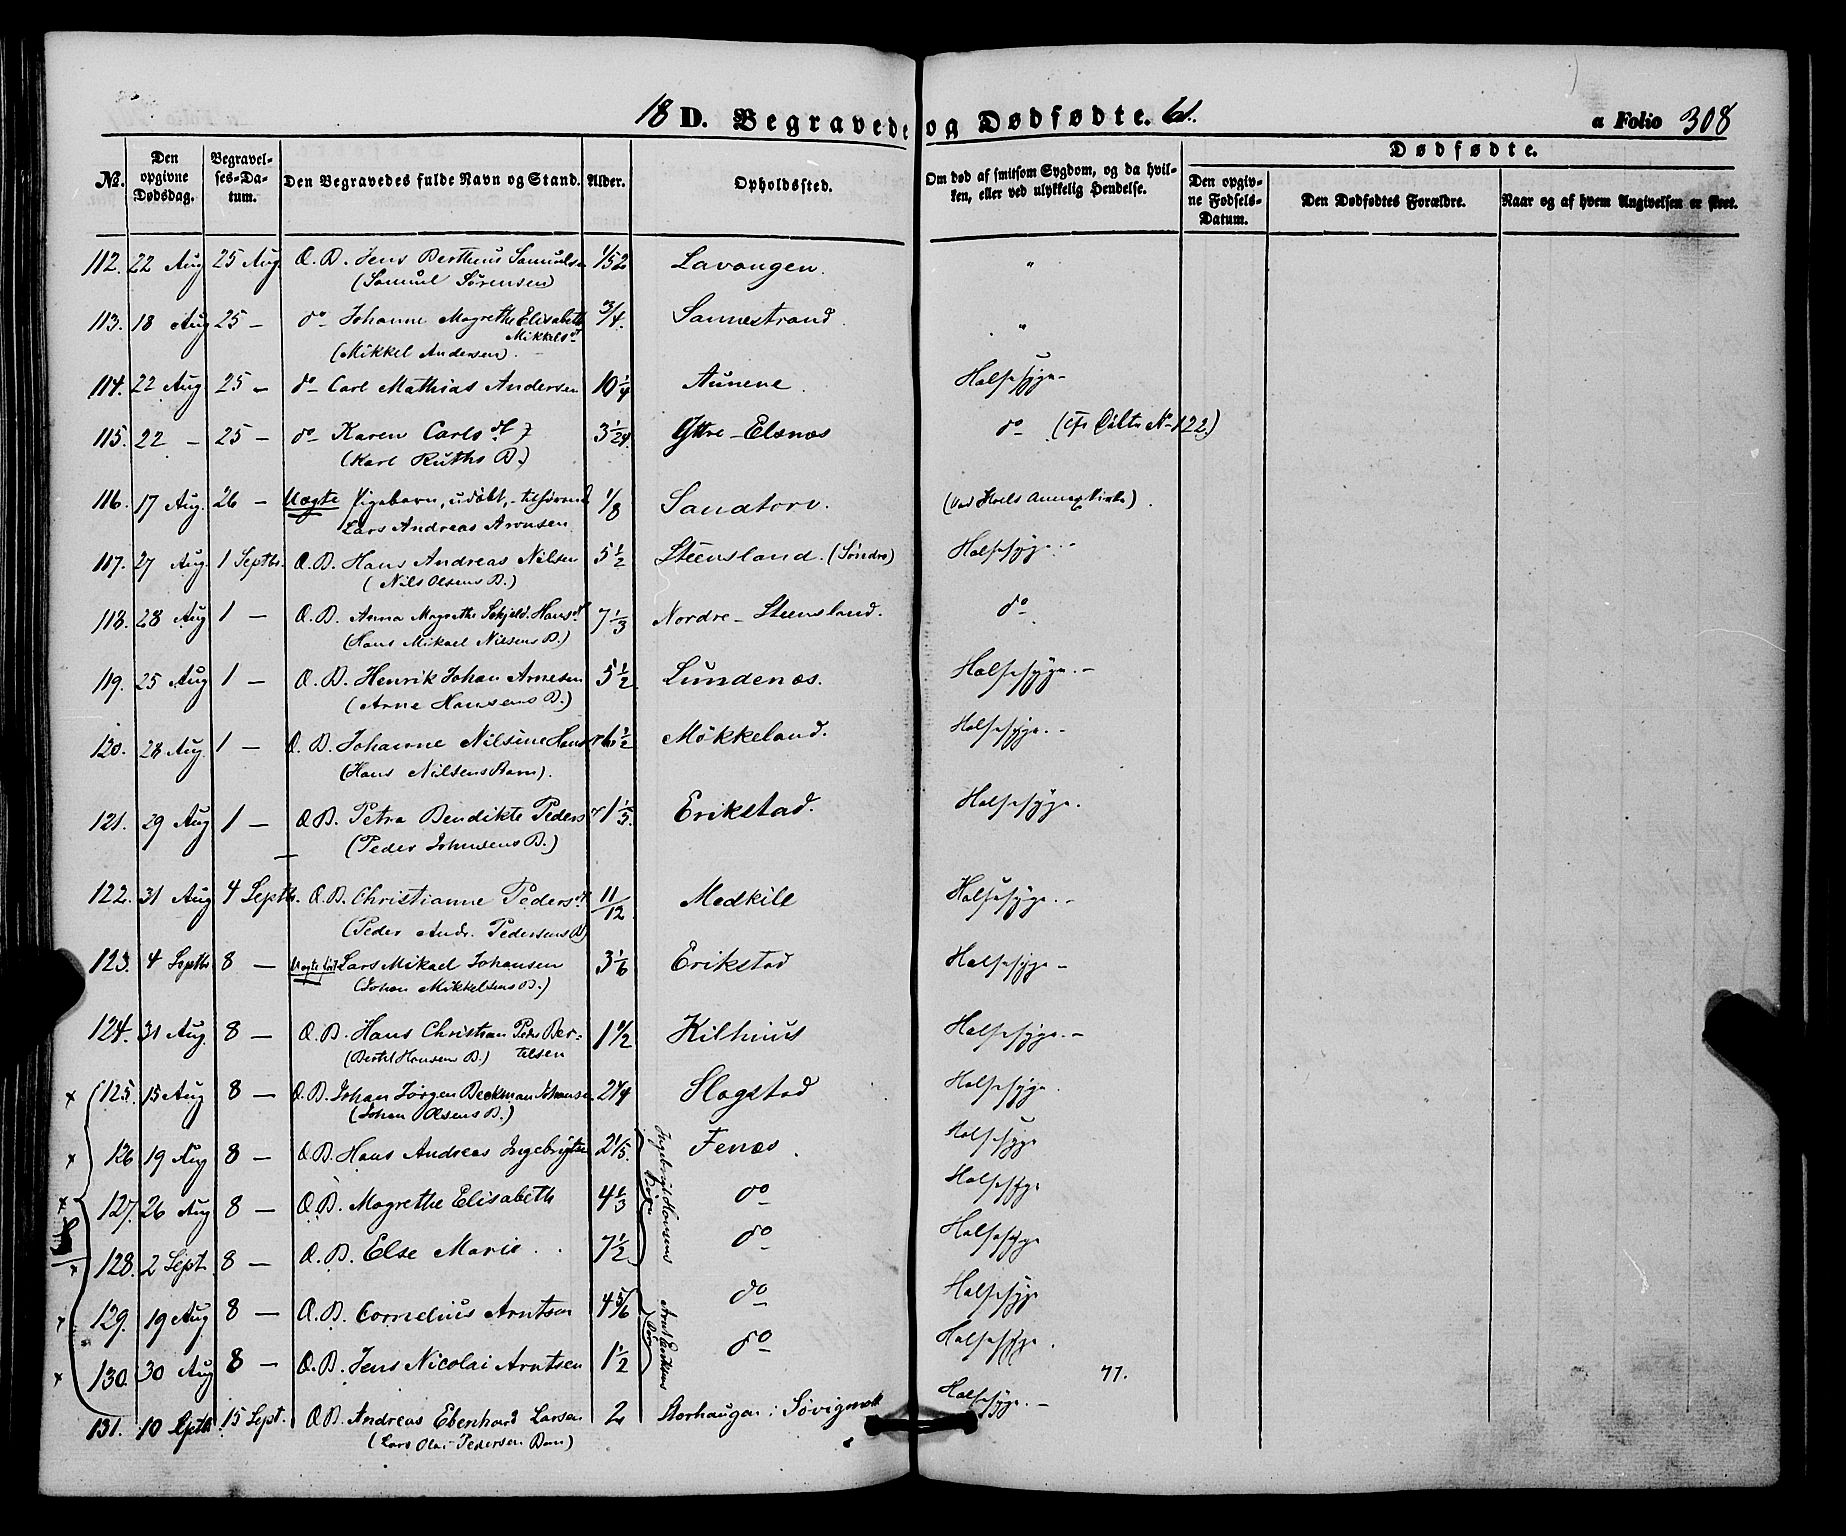 18 D. Begravede og Dødfødte. 61. a Folio 308
No. Den opgivne Dødsdag. Begravelses-Datum. Den Begravedes fulde Navn og Stand. Alder. Opholdssted. Om død af smitsom Sygdom, og da hvilken, eller ved ulykkelig Hendelse. Dødfødte.
Den opgivne Fødsels-Datum. Den Dødfødtes Forældre. Naar og af hvem Angivelsen er skeet.
112. 22 Aug 25 Aug Æ. B. Jens Bertheus Samuelsen 1/52 Lavangen. "
(Samuel Sørensen)
113. 18 Aug 25 - do Johanne Magrethe Elisabeth 3/4. Sannestrand. "
Mikkelsdt
(Mikkel Andersen).
114. 22 Aug 25 - do Carl Mathias Andersen 10 1/4 Aunene. Halsesyge -
115. 22 - 25 - do Karen Carlsdt 3 1/24. Yttre - Elsnæs do (cfr Dålte No 122)
(Karl Ruths B.)
116. 17 Aug. 26 - Uægte Pigebarn, udøbt, - tilhørende 1/8 Sandtorv. (ved Annex Kirke).
Lars Andreas Aronsen
117. 27 Aug. 1 Septbr. Æ. B. Hans Andreas Nilsen 5 1/2 Steensland. (Søndre) Halsesyge. -
(Nils Olsens B.)
118. 28 Aug 1 - Æ. B. Anna Magrethe Hansdt 7 1/3 Nordre - Steensland. do
(Hans Mikael Nilsens B.)
119. 25 Aug 1 - Æ. B. Henrik Johan Arnesen 5 1/2 Lundenæs. Halsesyge. -
(Arne Hansens B.)
120. 28 Aug. 1 - Æ. B. Johanne Nilsine Hansdt 6 1/2 Møkkeland. Halsesyge. -
(Hans Nilsens Barn).
121. 29 Aug 1 - Æ B. Petra Bendikte Pedersdt 1 1/5. Erikstad. Halsesyge.
(Peder Johnsens B.)
122. 31 Aug 4 Septbr. Æ. B. Christianne Pedersdt 11/12 Medkile Halsesyge. -
(Peder Andr. Pedersens B)
123. 4 Septbr 8 - Uægte Lars Mikael Johansen 3 1/6 Erikstad Halsesyge -
(Johan Mikkelsens B.)
124. 31 Aug. 8 - Æ. B. Hans Christian Peder Ber= 1 1/2 Kilhuus Halsesyge. -
(Bertel Hansens B.) telsen
x 125. 15 Aug 8 - Æ. B. Johan Jørgen Beckman Johansen 2 1/4 Slagstad Halsesyge.
(Johan Olsens B.)
x 126 19 Aug 8 - Æ B. Hans Andreas Ingebrigtsen 2 1/5. Fenæs. Halsesyge
x 127. 26 Aug 8 - Æ B. Magrethe Elisabeth 4 1/3 do Halsesyge
Ingebrigt Hansens
x 128. 2 Sept. 8 - Æ. B. Else Marie. 7 1/2 do Halsesyge
x 129. 19 Aug 8 - Æ. B. Cornelius Arntsen 4 5/6 do Halsesyge
x 130. 30 Aug 8 - Æ. B. Jens Nicolai Arntsen 1 1/2 do Halsesyge. 77.
131. 10 Septb 15 Sept. Æ B. Andreas Ebenhard Larsen 2 Storhaugen i Halsesyge. -
(Lars Olai Pedersen Barn)